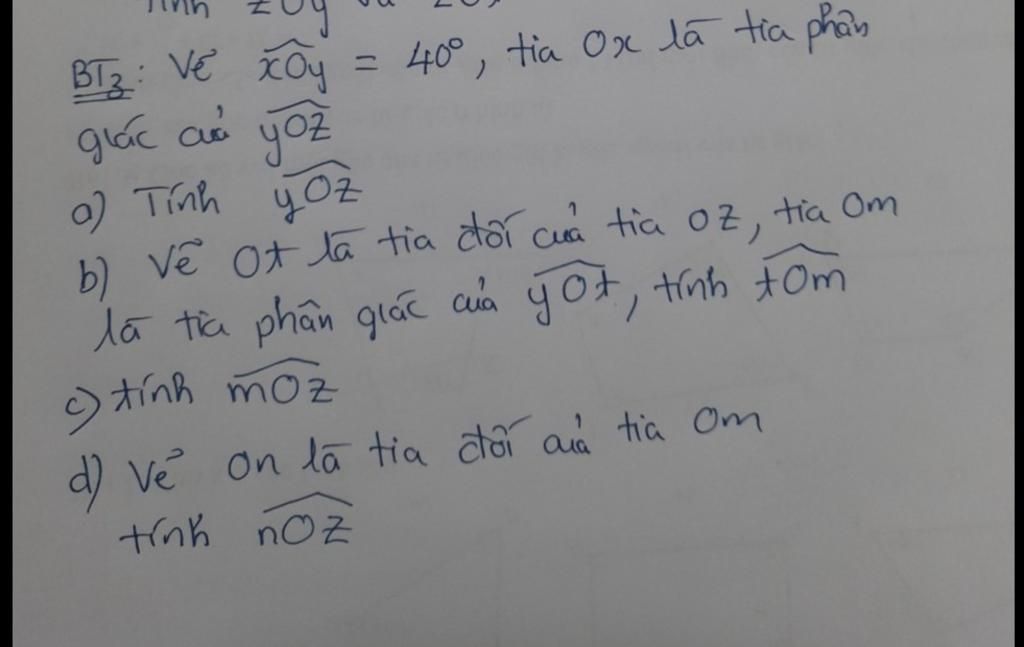 Tính zOy
BT3: Vẽ xOy = 40°, tia Ox là tia phân
giác của yOz
a) Tính yOz
b) Vẽ Ot là tia đối của tia OZ, tia Om
là tia phân giác của yOt, tính tOm
c) tính mOz
d) Vẽ On là tia đối của tia Om
tính nOz